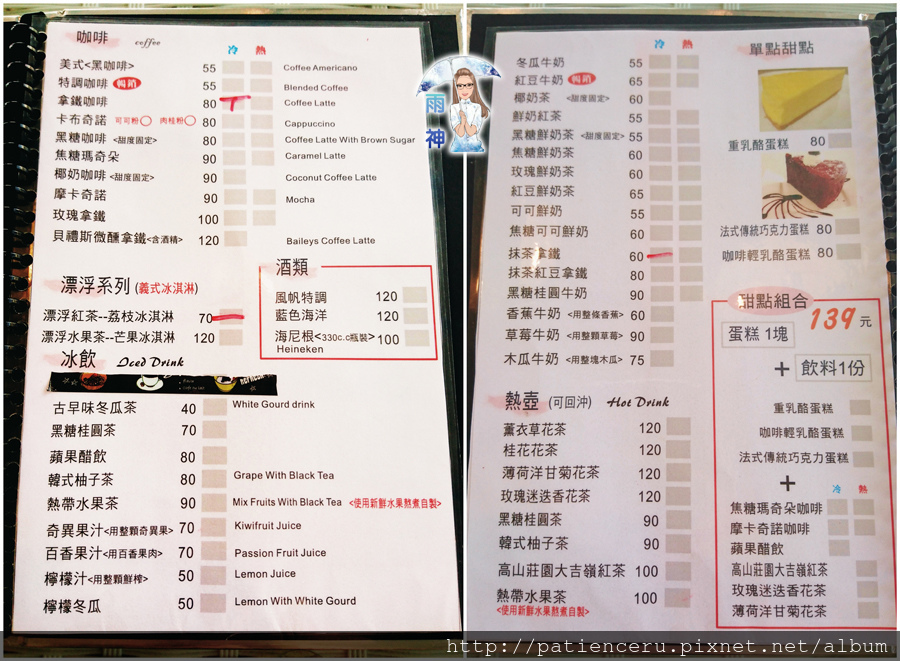 咖啡 coffee
冷 熱
美式<黑咖啡> 55 Coffee Americano
特調咖啡 暢銷 55 Blended Coffee
拿鐵咖啡 80 Coffee Latte
卡布奇諾 可可粉 肉桂粉 80 Cappuccino
黑糖咖啡 <甜度固定> 80 Coffee Latte With Brown Sugar
焦糖瑪奇朵 90 Caramel Latte
椰奶咖啡 <甜度固定> 90 Coconut Coffee Latte
摩卡奇諾 90 Mocha
玫瑰拿鐵 100
貝禮斯微醺拿鐵<含酒精> 120 Baileys Coffee Latte
漂浮系列 (義式冰淇淋)
漂浮紅茶--荔枝冰淇淋 70
漂浮水果茶--芒果冰淇淋 120
酒類
風帆特調 120
藍色海洋 120
海尼根<330c.c瓶裝> 100
Heineken
冰飲 Iced Drink
古早味冬瓜茶 40 White Gourd drink
黑糖桂圓茶 70
蘋果醋飲 80
韓式柚子茶 80 Grape With Black Tea
熱帶水果茶 90 Mix Fruits With Black Tea <使用新鮮水果熬煮自製>
奇異果汁<用整顆奇異果> 70 Kiwifruit Juice
百香果汁<用百香果肉> 70 Passion Fruit Juice
檸檬汁<用整顆鮮榨> 50 Lemon Juice
檸檬冬瓜 50 Lemon With White Gourd
雨神
冷 熱
冬瓜牛奶 55
紅豆牛奶 暢銷 65
椰奶茶 <甜度固定> 60
鮮奶紅茶 55
黑糖鮮奶茶 <甜度固定> 55
焦糖鮮奶茶 60
玫瑰鮮奶茶 55
紅豆鮮奶茶 60
可可鮮奶 55
焦糖可可鮮奶 60
抹茶拿鐵 60
抹茶紅豆拿鐵 80
黑糖桂圓牛奶 90
香蕉牛奶 <用整條香蕉> 60
草莓牛奶 <用整顆草莓> 90
木瓜牛奶 <用整塊木瓜> 75
熱壺 (可回沖) Hot Drink
薰衣草花茶 120
桂花花茶 120
薄荷洋甘菊花茶 120
玫瑰迷迭香花茶 120
黑糖桂圓茶 90
韓式柚子茶 90
高山莊園大吉嶺紅茶 100
熱帶水果茶 100
<使用新鮮水果熬煮自製>
單點甜點
重乳酪蛋糕 80
法式傳統巧克力蛋糕 80
咖啡輕乳酪蛋糕 80
甜點組合
蛋糕 1塊 139 元
+ 飲料1份
重乳酪蛋糕
咖啡輕乳酪蛋糕
法式傳統巧克力蛋糕
+ 冷 熱
焦糖瑪奇朵咖啡
摩卡奇諾咖啡
蘋果醋飲
高山莊園大吉嶺紅茶
玫瑰迷迭香花茶
薄荷洋甘菊花茶
http://patienceru.pixnet.net/album